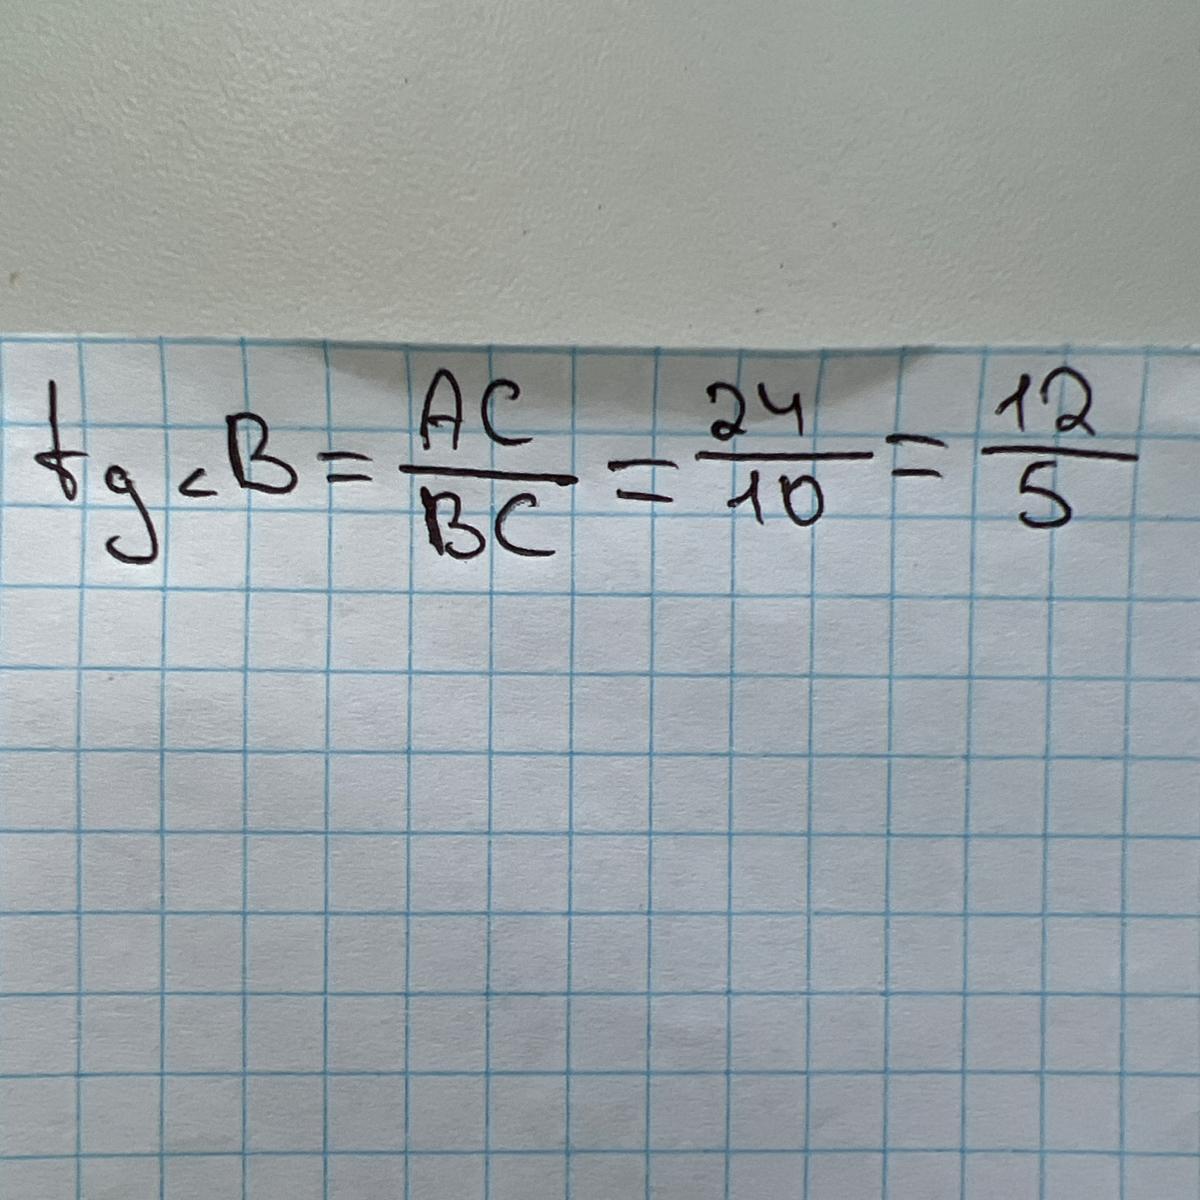 tg <B = AC/BC = 24/10 = 12/5